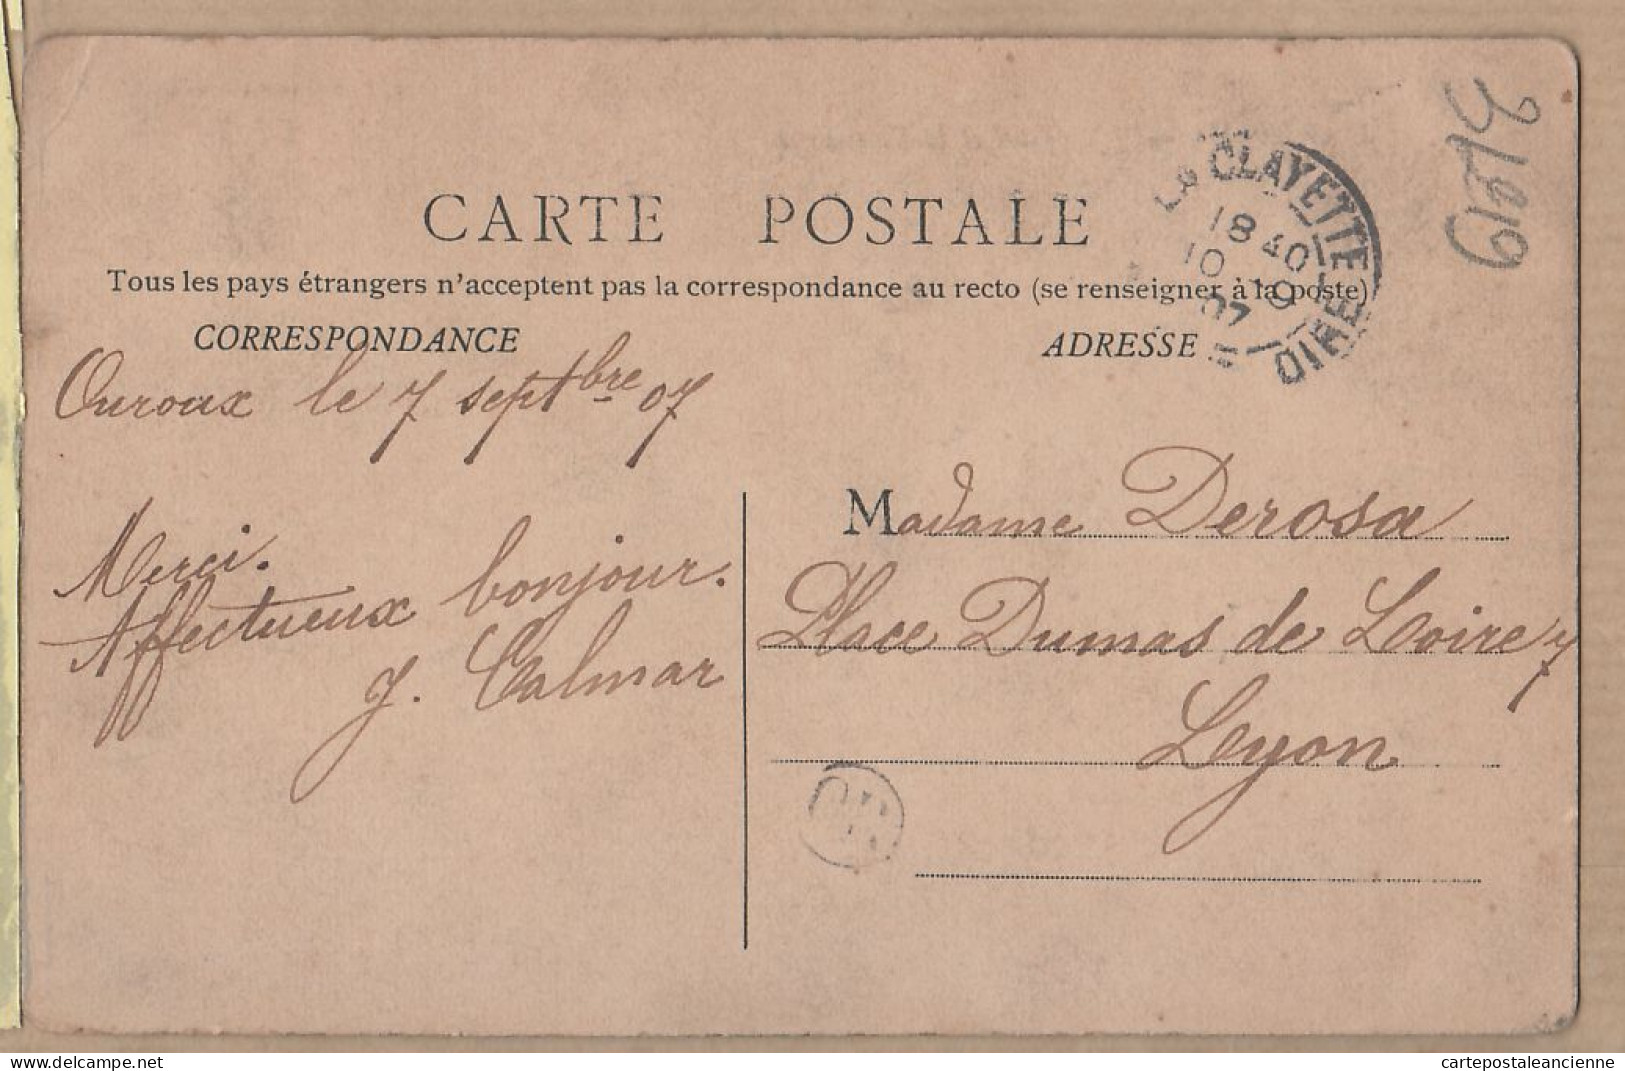 CARTE POSTALE
Tous les pays étrangers n'acceptent pas la correspondance au recto (se renseigner à la poste)
CORRESPONDANCE
ADRESSE
LA CLAYETTE
18 40
10 9
07
Ouroux le 7 septbre 07
Merci.
Affectueux bonjour.
J. Calmar
Madame Derosa
Place Dumas de Loire 7
Lyon
delcampe.net
cartepostaleancienne